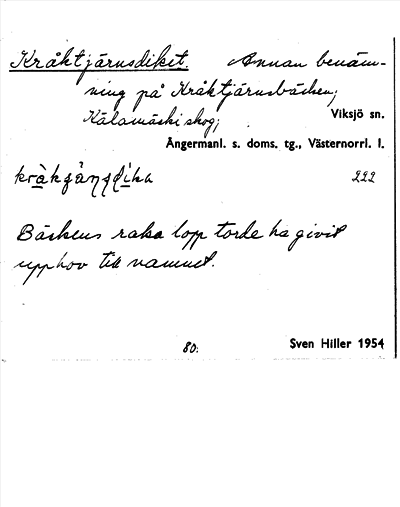 Kråktjärnsdiket. Annan benäm-
ning på Kråktjärnsbäcken,
Viksjö sn.
skog;
Ångermanl. s. doms. tg., Västernorrl. l.
222
Bäckens raka lopp torde ha givit
upphov till namnet.
80:
Sven Hiller 1954